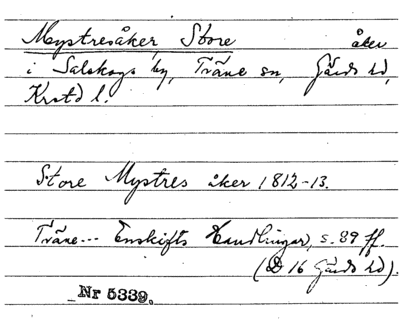 Mystresåker, Store åker
i Salskogs by, Träne sn, Gärds hd,
Krstd l.
Store Mystres åker 1812-13.
Träne... Enskifts Handlingar, s. 89 ff.
(D 16 Gärds hd).
Nr 5339.